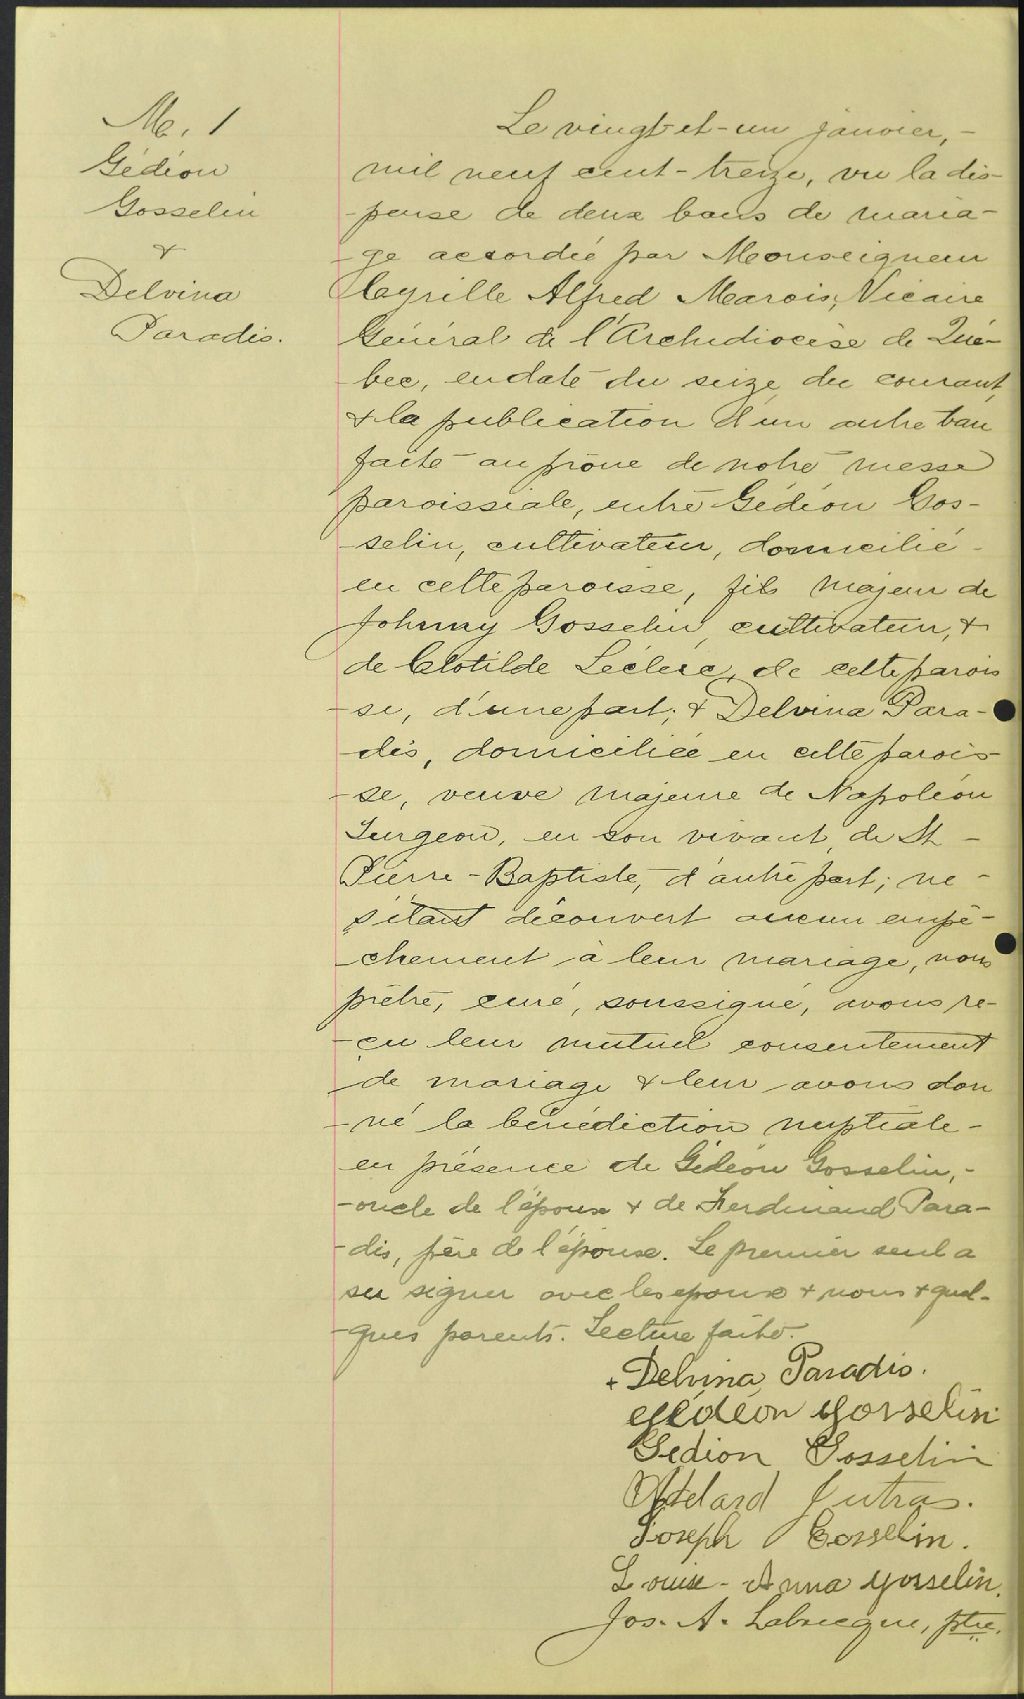 M. 1
Gédéon
Gosselin
&
Delvina
Paradis.
Le vingt-et-un janvier, -
mil neuf cent-treize, vu la dis-
-pense de deux bans de maria-
-ge accordée par Monseigneur
Cyrille Alfred Marois, Vicaire
Général de l'Archidiocèse de Qué-
-bec, en date du seize du courant,
& la publication d'un autre ban
faite au prône de notre messe
paroissiale, entre Gédéon Gos-
-selin, cultivateur, domicilié -
en cette paroisse, fils majeur de
Johnny Gosselin, cultivateur, &
de Clotilde Leclerc, de cette parois
-se, d'une part; & Delvina Para-
-dis, domiciliée en cette parois-
-se, veuve majeure de Napoléon
Turgeon, en son vivant, de St -
Pierre-Baptiste, d'autre part; ne -
s'étant découvert aucun empê-
-chement à leur mariage, nous
prêtre, curé, soussigné, avons re-
-çu leur mutuel consentement
de mariage & leur avons don
-né la bénédiction nuptiale -
en présence de Gédéon Gosselin, -
-oncle de l'époux & de Ferdinand Para-
-dis, père de l'épouse. Le premier seul a
su signer avec les époux & nous & quel-
-ques parents. Lecture faite.
+ Delvina Paradis.
Gédéon Gosselin
Gedion Gosselin
Adelard Jutras.
Joseph Gosselin.
Louise-Anna Gosselin.
Jos. A. Labrecque, ptre.